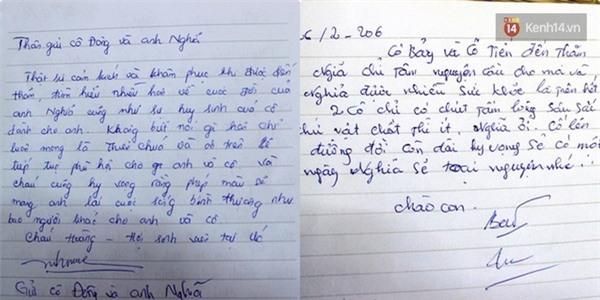 Thân gửi cô Đông và anh Nghĩa
Thật sự cảm kích và khâm phục khi được đến
thăm, tìm hiểu nhiều hơn về cuộc đời của
anh Nghĩa cũng như sự hy sinh của cô
dành cho anh. Không biết nói gì hơn chỉ
luôn mong là Thiên chúa và ở trên sẽ
tiếp tục phù hộ cho gia anh và cô và
cháu cũng hy vọng rằng phép màu sẽ
mang anh lại cuộc sống bình thường như
bao người khác cho anh và cô.
Cháu Hoàng - Học sinh
Gửi cô Đông và anh Nghĩa
/2-206
Cô Bảy và Cô Tiên đến Thăm
Nghĩa chỉ Tâm nguyện cầu cho má và
Nghĩa được nhiều Sức Khỏe là trên hết
2 Cô chỉ có chút tấm lòng sâu sắc
thú vật chất thì ít, Nghĩa ơi. Cố lên
đường đời Còn dài hy vọng sẽ có một
ngày Nghĩa sẽ toại nguyện nhé
chào con.
Bảy
14 Kenh14.vn